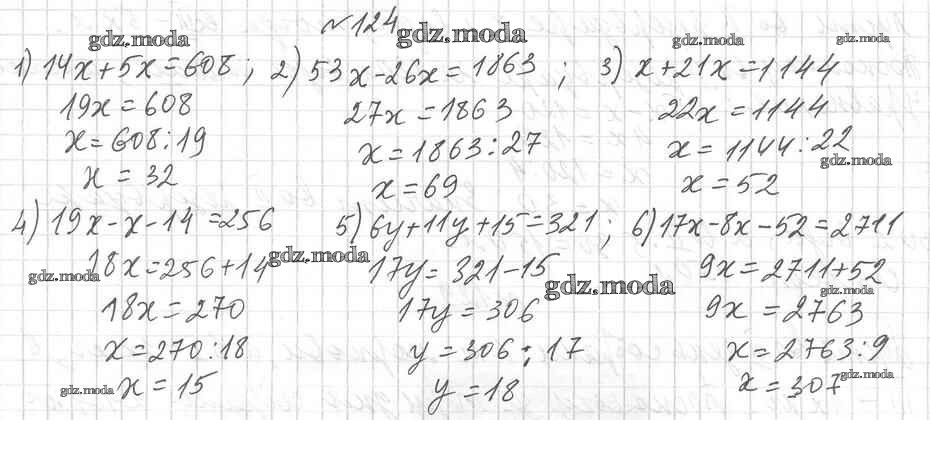 №124
gdz.moda gdz.moda gdz.moda gdz.moda
1) 14x+5x=608; 2) 53x-26x=1863; 3) x+21x=1144
19x=608 27x=1863 22x=1144
x=608:19 x=1863:27 x=1144:22
gdz.moda
x=32 x=69 x=52
4) 19x-x-14=256 5) 6y+11y+15=321; 6) 17x-8x-52=2711
gdz.moda
18x=256+14 17y=321-15 9x=2711+52
gdz.moda gdz.moda gdz.moda
18x=270 17y=306 9x=2763
x=270:18 y=306:17 x=2763:9
gdz.moda gdz.moda
x=15 y=18 x=307